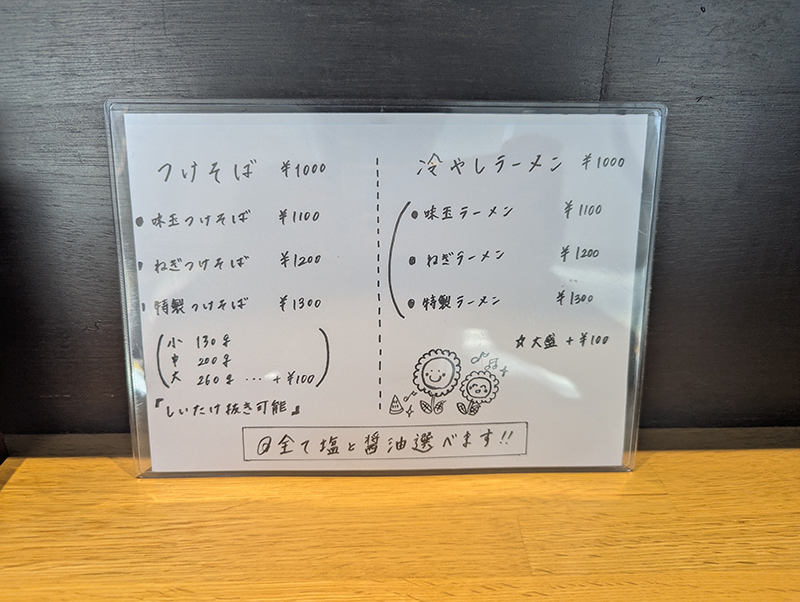 つけそば ¥1000
● 味玉つけそば ¥1100
● ねぎつけそば ¥1200
● 特製つけそば ¥1300
小 130g
中 200g
大 260g … +¥100
『しいたけ抜き可能』
冷やしラーメン ¥1000
● 味玉ラーメン ¥1100
● ねぎラーメン ¥1200
● 特製ラーメン ¥1300
☆大盛 +¥100
全て塩と醤油選べます!!